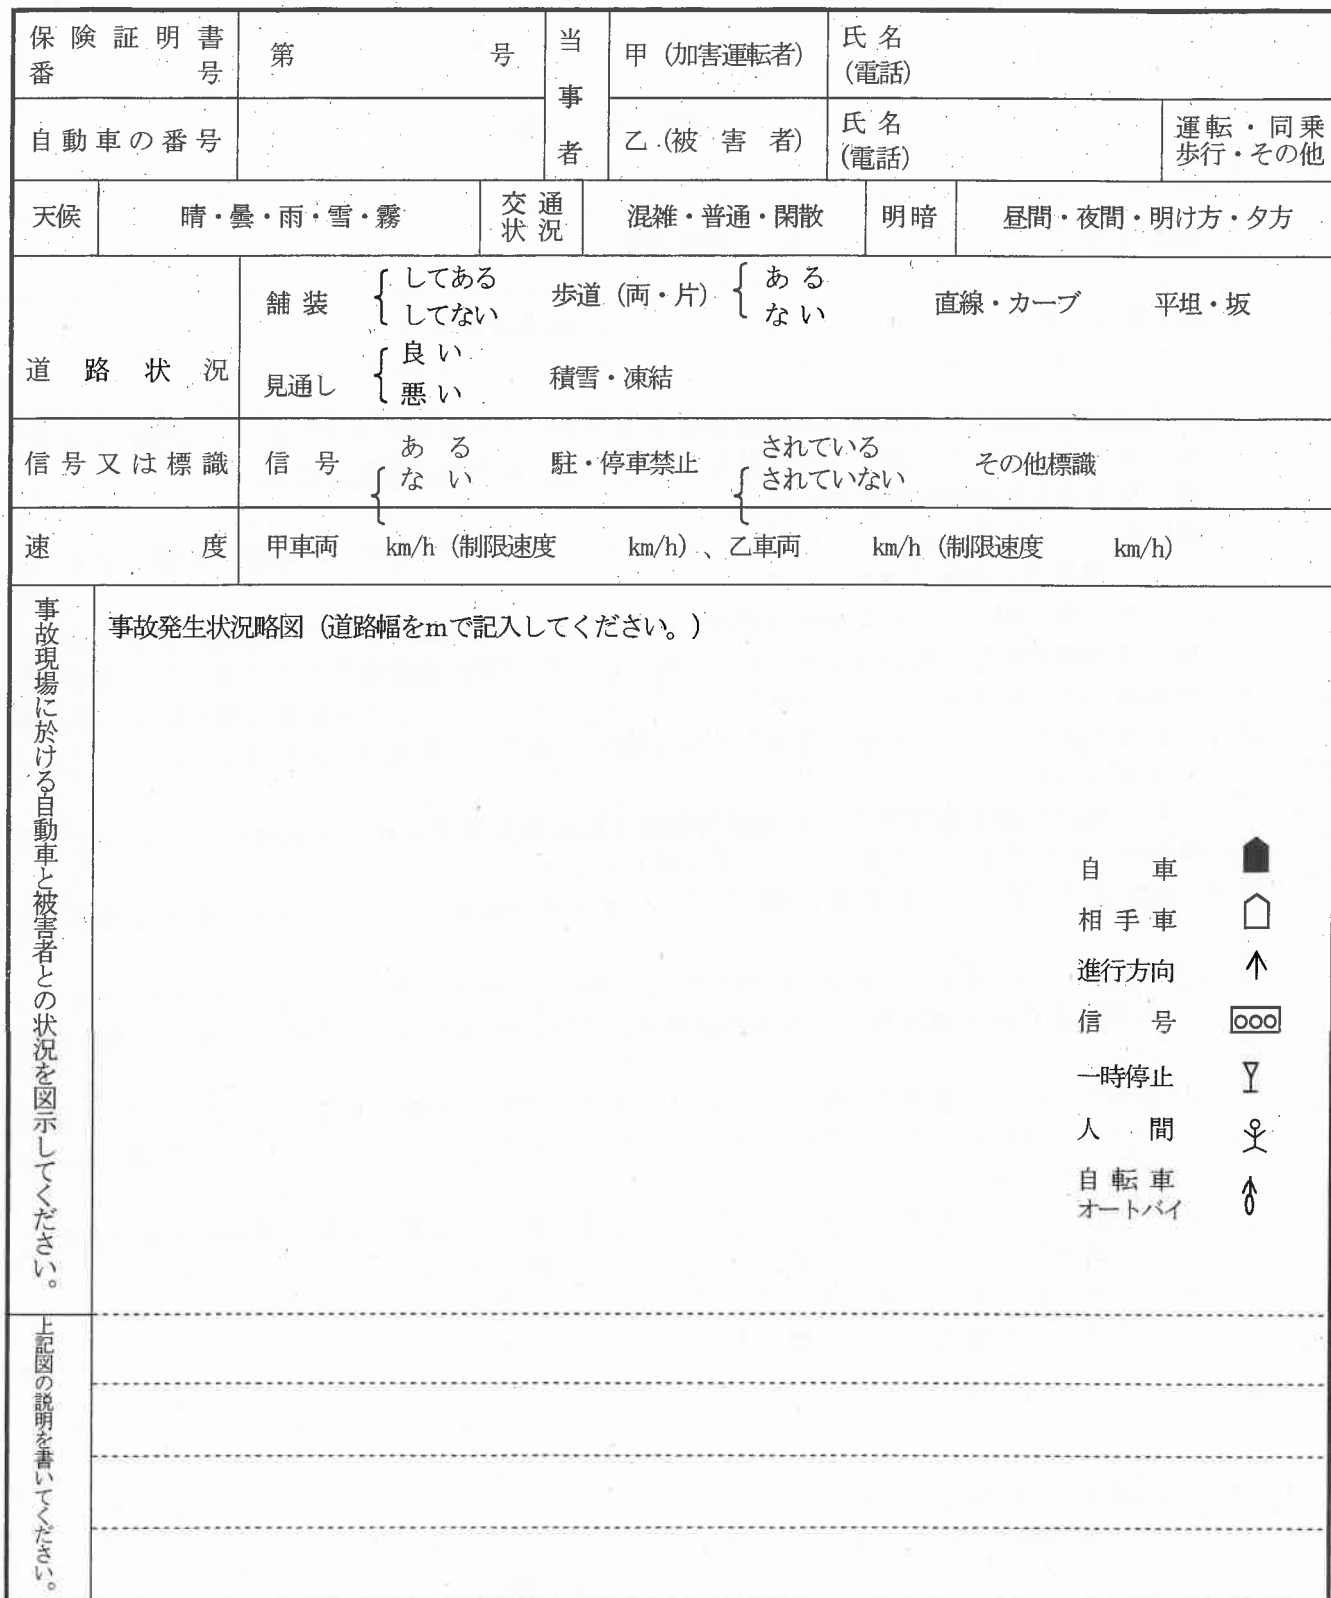 保険証明書
番号
第 号
当事者
甲（加害運転者）
氏名
(電話)
自動車の番号
乙（被害者）
氏名
(電話)
運転・同乗
歩行・その他
天候
晴・曇・雨・雪・霧
交通
状況
混雑・普通・閑散
明暗
昼間・夜間・明け方・夕方
道路状況
舗装 { してある
してない
歩道（両・片） { ある
ない
直線・カーブ 平坦・坂
見通し { 良い
悪い
積雪・凍結
信号又は標識
信号 { ある
ない
駐・停車禁止 { されている
されていない
その他標識
速度
甲車両 km/h（制限速度 km/h）、乙車両 km/h（制限速度 km/h）
事故現場に於ける自動車と被害者との状況を図示してください。
事故発生状況略図（道路幅をmで記入してください。）
自車
相手車
進行方向
信号
一時停止
人間
自転車
オートバイ
上記図の説明を書いてください。